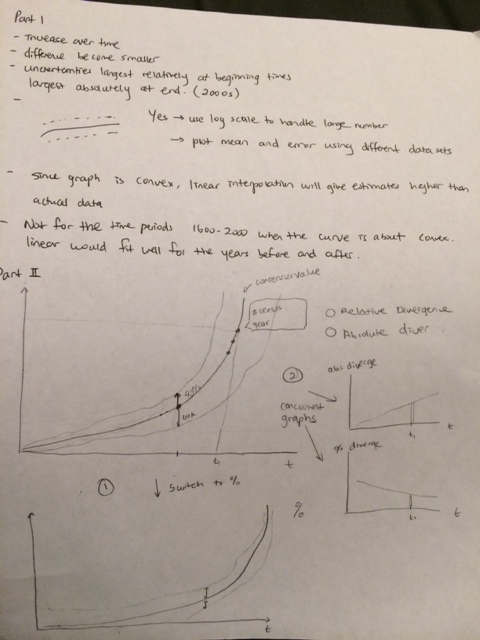 Part 1
- Increase over time
- difference become smaller
- uncertainties largest relatively at beginning times
largest absolutely at end. (2000s)
-
Yes → use log scale to handle large number
→ plot mean and error using different data sets
- Since graph is convex, linear interpolation will give estimates higher than
actual data
- Not for the time periods 1600-2000 when the curve is about convex.
linear would fit well for the years before and after.
Part II
consensus value
year
Relative Divergence
Absolute diver
②
abs diverge
concurrent
graphs
t
t₁
% diverge
t
t₁
t₁
t
① ↓ Switch to %
%
t